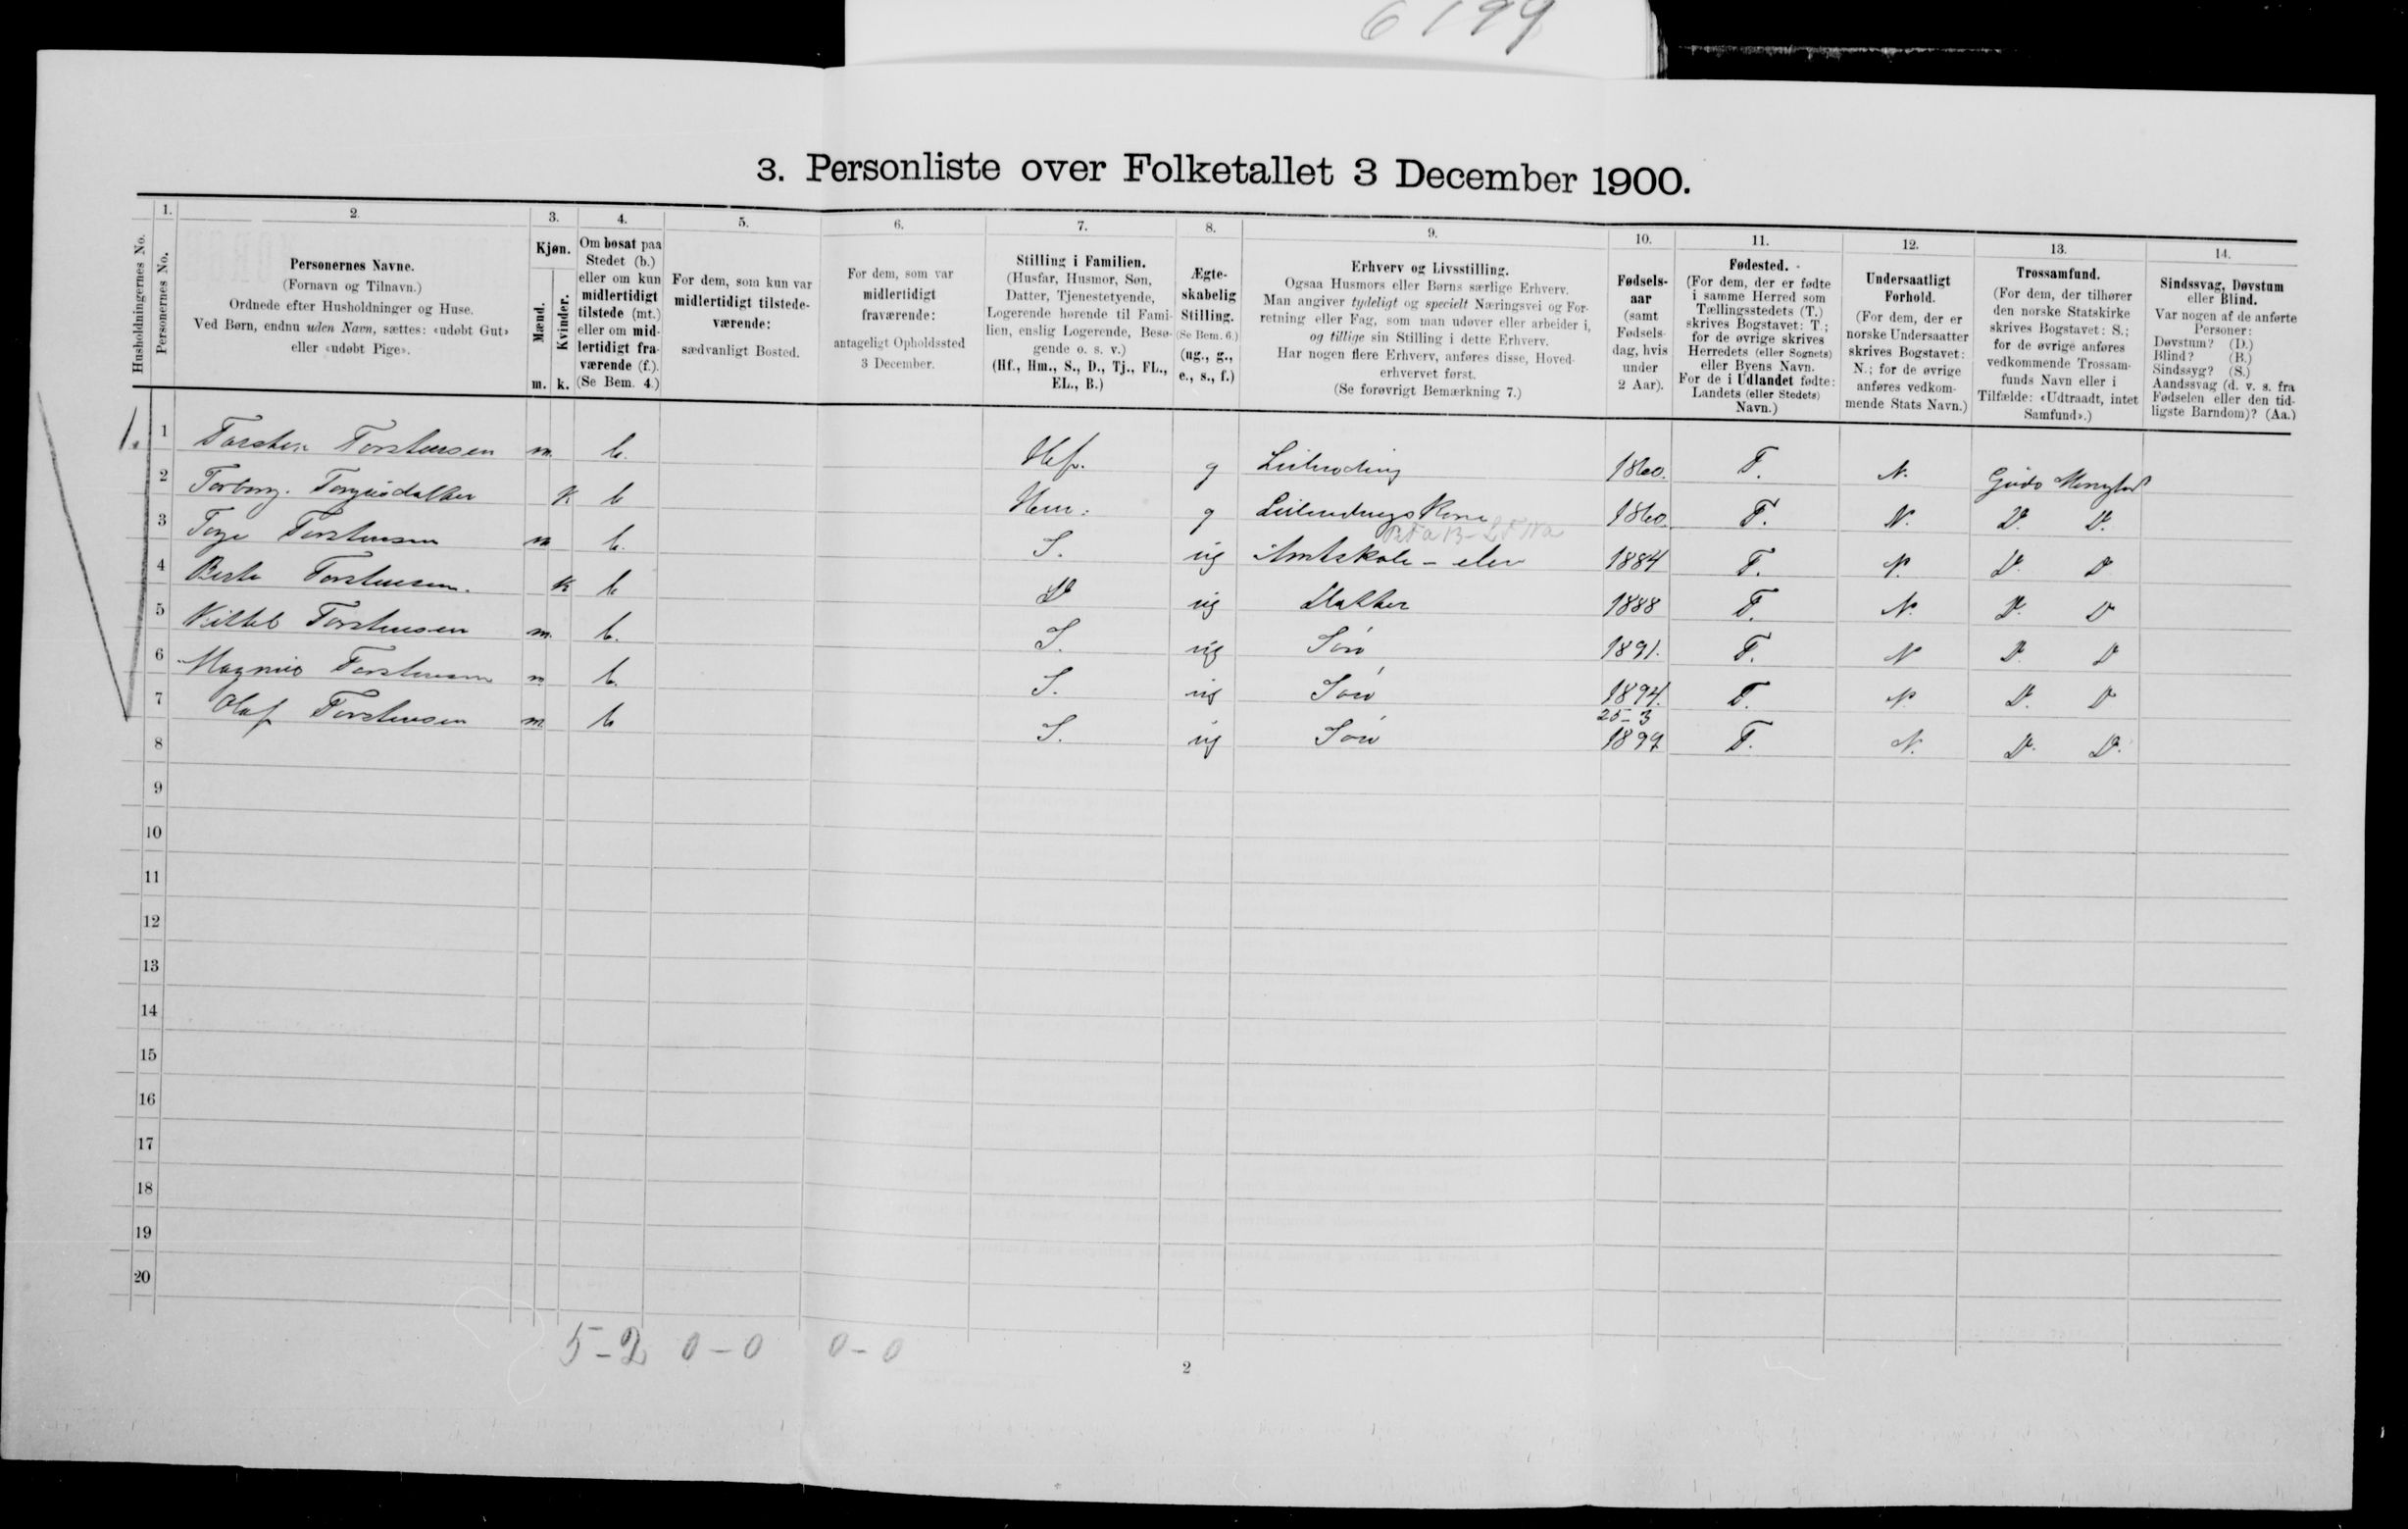 6199
3. Personliste over Folketallet 3 December 1900.
Husholdningernes No.
1.
Personernes No.
2.
Personernes Navne.
(Fornavn og Tilnavn.)
Ordnede efter Husholdninger og Huse.
Ved Børn, endnu uden Navn, sættes: «udøbt Gut»
eller «udøbt Pige».
3.
Kjøn.
Mænd.
Kvinder.
m. k.
4.
Om bosat paa
Stedet (b.)
eller om kun
midlertidigt
tilstede (mt.)
eller om mid-
lertidigt fra-
værende (f.).
(Se Bem. 4.)
5.
For dem, som kun var
midlertidigt tilstede-
værende:
sædvanligt Bosted.
6.
For dem, som var
midlertidigt
fraværende:
antageligt Opholdssted
3 December.
7.
Stilling i Familien.
(Husfar, Husmor, Søn,
Datter, Tjenestetyende,
Logerende hørende til Fami-
lien, enslig Logerende, Besø-
gende o. s. v.)
(Hf., Hm., S., D., Tj., FL.,
EL., B.)
8.
Ægte-
skabelig
Stilling.
(Se Bem. 6.)
(ug., g.,
e., s., f.)
9.
Erhverv og Livsstilling.
Ogsaa Husmors eller Børns særlige Erhverv.
Man angiver tydeligt og specielt Næringsvei og For-
retning eller Fag, som man udøver eller arbeider i,
og tillige sin Stilling i dette Erhverv.
Har nogen flere Erhverv, anføres disse, Hoved-
erhvervet først.
(Se forøvrigt Bemærkning 7.)
10.
Fødsels-
aar
(samt
Fødsels-
dag, hvis
under
2 Aar).
11.
Fødested.
(For dem, der er fødte
i samme Herred som
Tællingsstedets (T.)
skrives Bogstavet: T.;
for de øvrige skrives
Herredets (eller Sognets)
eller Byens Navn.
For de i Udlandet fødte:
Landets (eller Stedets)
Navn.)
12.
Undersaatligt
Forhold.
(For dem, der er
norske Undersaatter
skrives Bogstavet:
N.; for de øvrige
anføres vedkom-
mende Stats Navn.)
13.
Trossamfund.
(For dem, der tilhører
den norske Statskirke
skrives Bogstavet: S.;
for de øvrige anføres
vedkommende Trossam-
funds Navn eller i
Tilfælde: «Udtraadt, intet
Samfund».)
14.
Sindssvag, Døvstum
eller Blind.
Var nogen af de anførte
Personer:
Døvstum? (D.)
Blind? (B.)
Sindssyg? (S.)
Aandssvag (d. v. s. fra
Fødselen eller den tid-
ligste Barndom)? (Aa.)
1. 1 Torsten Torstensen m. b. Hf. g Leilending 1860. T. N.
2 Torborg. k b Hm. g Leilendings Kone 1860. T. N. D. D.
3 Torstensen m b. S. ug Amtskole - elev 1884 T. N. D. D
4 Torstensen. k b D ug Datter 1888 T. N. D. D
5 Kittel Torstensen m. b. S. ug Søn 1891. T. N D. D
6 Magnus Torstensen m b. S. ug Søn 1894. T. N D. D
7 Olaf Torstensen m. b S. ug Søn 25-3 1899 T. N. D. D.
8
9
10
11
12
13
14
15
16
17
18
19
20
5-2 0-0 0-0
2